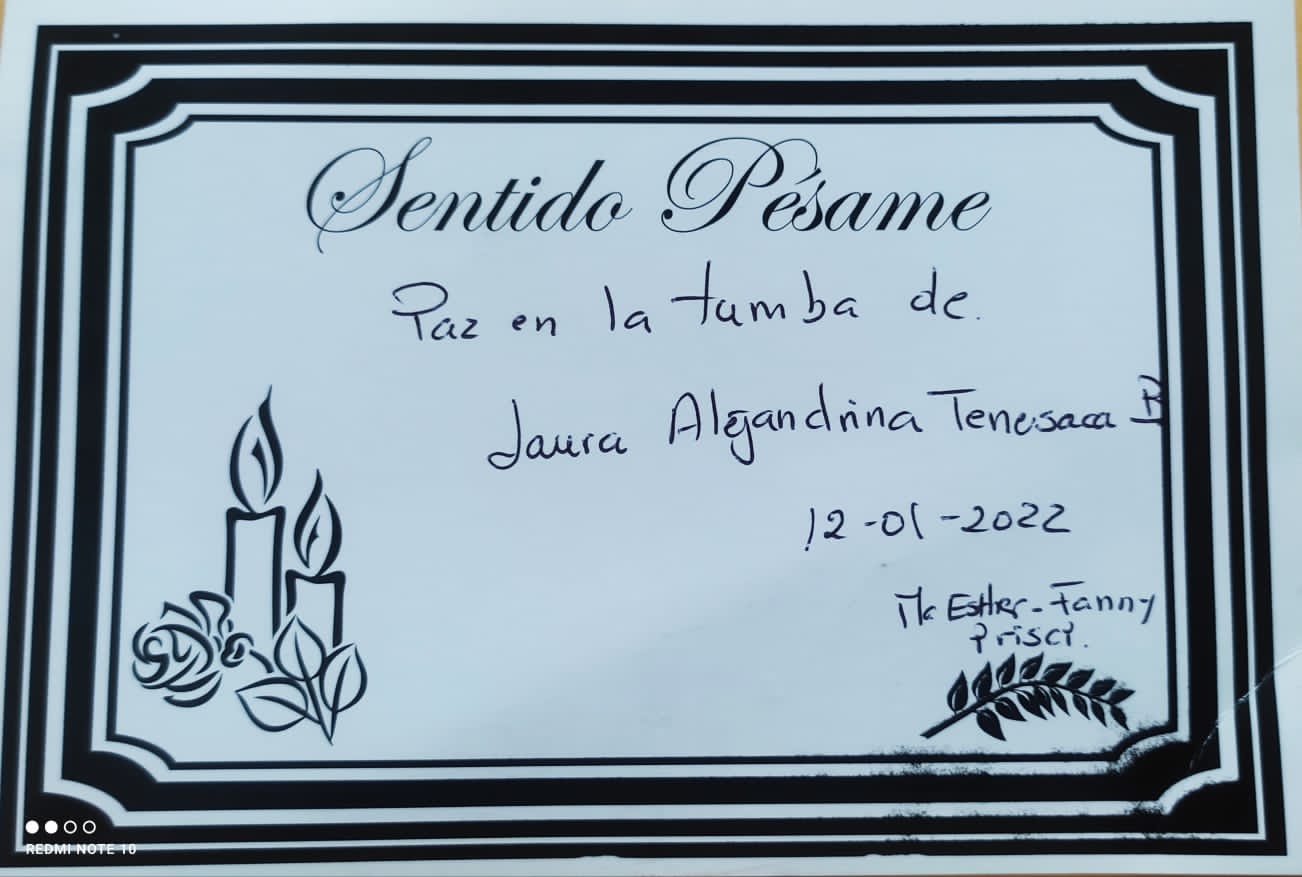 Sentido Pésame
Paz en la tumba de.
Laura Alejandrina Tenesaca B
12-01-2022
Ma Esther - Fanny
Prisci.
REDMI NOTE 10